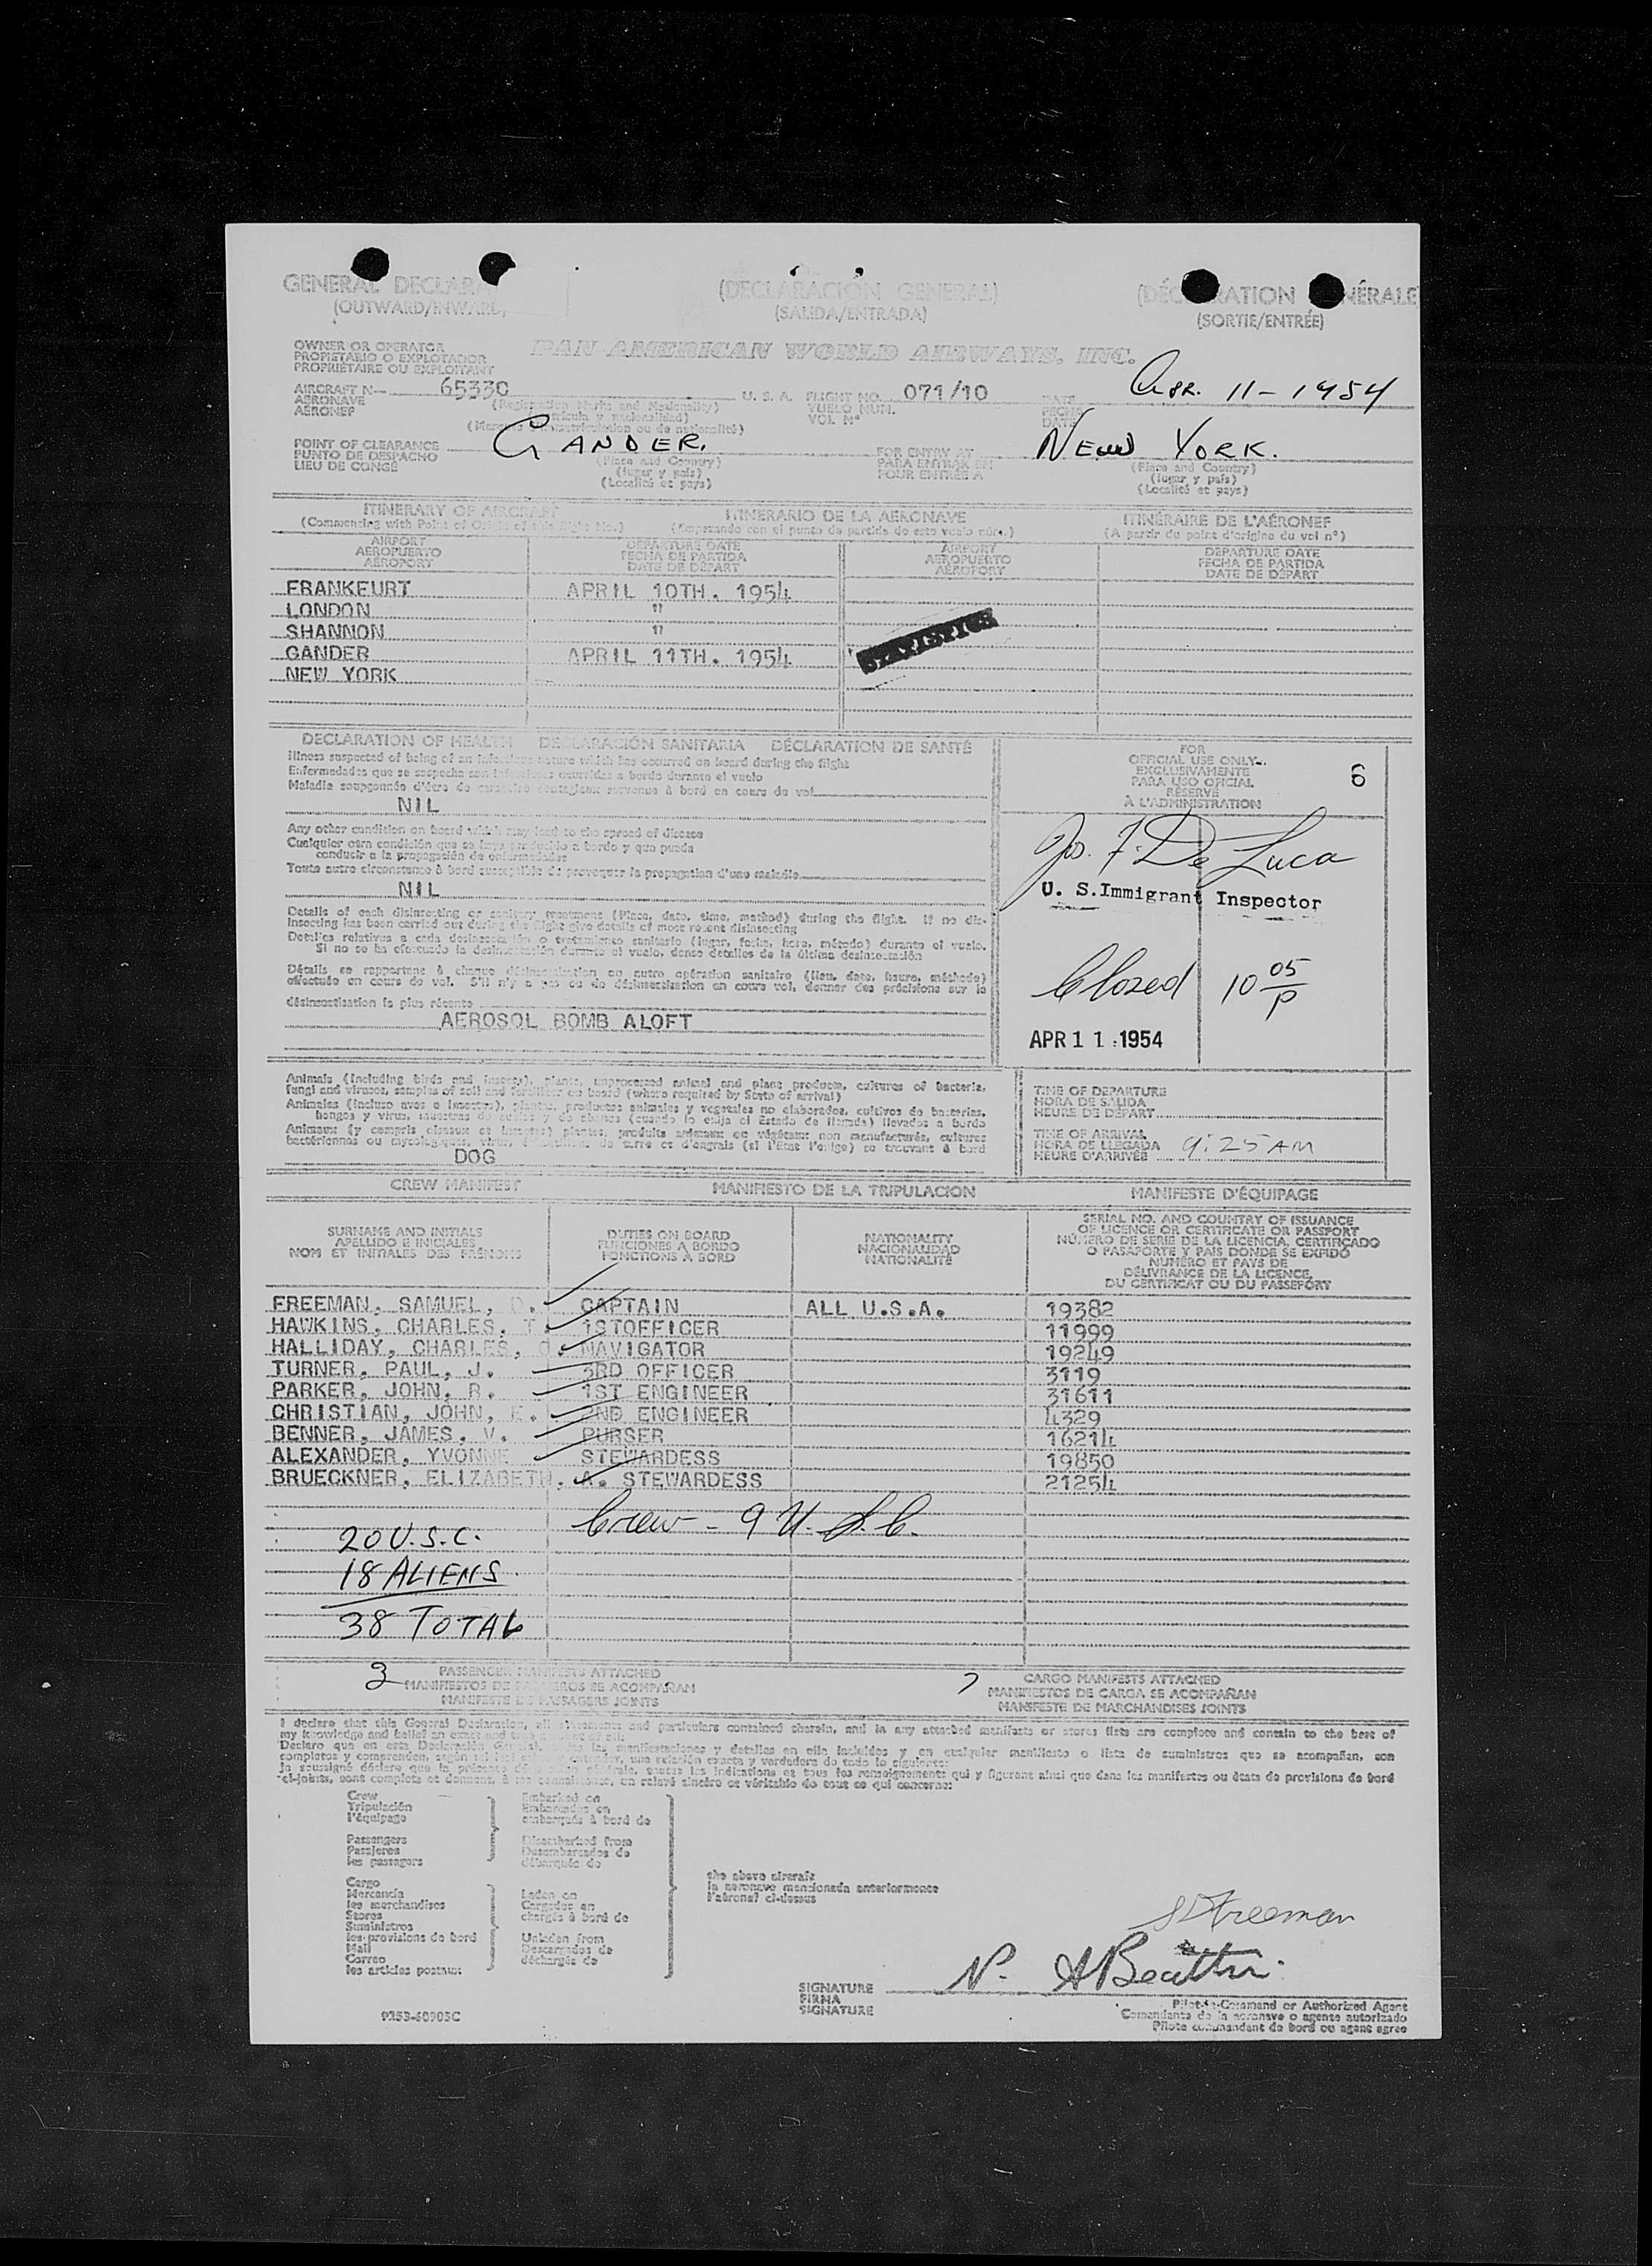 GENERAL DECLAR
(DECLARACIÓN GENERAL)
(DÉC RATION NÉRALE
(OUTWARD/INWARD)
(SALIDA/ENTRADA)
(SORTIE/ENTRÉE)
OWNER OR OPERATOR
PROPIETARIO O EXPLOTADOR
PROPRIÉTAIRE OU EXPLOITANT
PAN AMERICAN WORLD AIRWAYS, INC.
AIRCRAFT N— 65330 U. S. A. FLIGHT NO. 071/10 DATE Apr. 11-1954
AERONAVE (Registration Marks and Nationality) VUELO NUM. FECHA
AÉRONEF VOL Nº DATE
POINT OF CLEARANCE GANDER. FOR ENTRY AT NEW YORK.
PUNTO DE DESPACHO (Place and Country) PARA ENTRAR EN (Place and Country)
LIEU DE CONGÉ (lugar y país) POUR ENTRÉE A (lugar y país)
(Localité et pays) (Localité et pays)
ITINERARY OF AIRCRAFT ITINERARIO DE LA AERONAVE ITINÉRAIRE DE L'AÉRONEF
(Empezando con el punto de partida de este vuelo núm.) (A partir du point d'origine du vol nº)
AIRPORT DEPARTURE DATE AIRPORT DEPARTURE DATE
AEROPUERTO FECHA DE PARTIDA AEROPUERTO FECHA DE PARTIDA
AÉROPORT DATE DE DÉPART AÉROPORT DATE DE DÉPART
FRANKFURT APRIL 10TH. 1954
LONDON "
SHANNON "
STATISTICS
GANDER APRIL 11TH. 1954
NEW YORK
DECLARATION OF HEALTH DECLARACIÓN SANITARIA DÉCLARATION DE SANTÉ
Illness suspected of being of an infectious nature which has occurred on board during the flight
Enfermedades que se sospecha son infecciosas ocurridas a bordo durante el vuelo
Maladie soupçonnée d'être de caractère contagieux survenue à bord en cours de vol
NIL
Any other condition on board which may lead to the spread of disease
Cualquier otra condición que se haya producido a bordo y que pueda
conducir a la propagación de enfermedades
Toute autre circonstance à bord susceptible de provoquer la propagation d'une maladie
NIL
Details of each disinsecting or sanitary treatment (Place, date, time, method) during the flight. If no dis-
insecting has been carried out during the flight give details of most recent disinsecting
Detalles relativos a cada desinsectación o tratamiento sanitario (lugar, fecha, hora, método) durante el vuelo.
Si no se ha efectuado la desinsectación durante el vuelo, dense detalles de la última desinsectación
Détails se rapportant à chaque désinsectisation ou autre opération sanitaire (lieu, date, heure, méthode)
effectuée en cours de vol. S'il n'y a pas eu de désinsectisation en cours vol, donner des précisions sur la
désinsectisation la plus récente
AEROSOL BOMB ALOFT
FOR
OFFICIAL USE ONLY
EXCLUSIVAMENTE
PARA USO OFICIAL
RÉSERVÉ
À L'ADMINISTRATION
6
Jos. F. De Luca
U. S. Immigrant Inspector
Closed 10 05/P
APR 11 1954
Animals (including birds and insects), plants, unprocessed animal and plant products, cultures of bacteria,
fungi and viruses, samples of soil and fertilizer on board (where required by State of arrival)
Animales (incluso aves e insectos), plantas, productos animales y vegetales no elaborados, cultivos de bacterias,
hongos y virus, muestras de suelos y de abonos (cuando lo exija el Estado de llegada) llevados a bordo
Animaux (y compris oiseaux et insectes) plantes, produits animaux et végétaux non manufacturés, cultures
bactériennes ou mycologiques, virus, échantillons de terre et d'engrais (si l'État l'exige) se trouvant à bord
DOG
TIME OF DEPARTURE
HORA DE SALIDA
HEURE DE DÉPART
TIME OF ARRIVAL
HORA DE LLEGADA 9:25 AM
HEURE D'ARRIVÉE
CREW MANIFEST MANIFIESTO DE LA TRIPULACION MANIFESTE D'ÉQUIPAGE
SURNAME AND INITIALS
APELLIDO E INICIALES
NOM ET INITIALES DES PRÉNOMS
DUTIES ON BOARD
FUNCIONES A BORDO
FONCTIONS À BORD
NATIONALITY
NACIONALIDAD
NATIONALITÉ
SERIAL NO. AND COUNTRY OF ISSUANCE
OF LICENCE OR CERTIFICATE OR PASSPORT
NÚMERO DE SERIE DE LA LICENCIA, CERTIFICADO
O PASAPORTE Y PAIS DONDE SE EXPIDÓ
NUMÉRO ET PAYS DE
DÉLIVRANCE DE LA LICENCE,
DU CERTIFICAT OU DU PASSEPORT
FREEMAN, SAMUEL, D. CAPTAIN ALL U.S.A. 19382
HAWKINS, CHARLES, T. 1STOFFICER 11999
HALLIDAY, CHARLES, NAVIGATOR 19249
TURNER, PAUL, J. 3RD OFFICER 3119
PARKER, JOHN, R. 1ST ENGINEER 31611
CHRISTIAN, JOHN, E. 2ND ENGINEER 4329
BENNER, JAMES, V. PURSER 16214
ALEXANDER, YVONNE STEWARDESS 19850
BRUECKNER, ELIZABETH, A. STEWARDESS 21254
Crew - 9 U.S.C.
20 U.S.C.
18 ALIENS
38 TOTAL
3 PASSENGER MANIFESTS ATTACHED CARGO MANIFESTS ATTACHED
MANIFIESTOS DE PASAJEROS SE ACOMPAÑAN MANIFIESTOS DE CARGA SE ACOMPAÑAN
MANIFESTE DE PASSAGERS JOINTS MANIFESTE DE MARCHANDISES JOINTS
I declare that this General Declaration, all statements and particulars contained therein, and in any attached manifests or stores lists are complete and contain to the best of
my knowledge and belief an exact and true
Declaro que en esta Declaración General, las manifestaciones y detalles en ella incluidos y en cualquier manifiesto o lista de suministros que se acompañan, son
completos y comprenden, según mi leal saber y entender, una relación exacta y verdadera de todo lo siguiente:
Je soussigné déclare que la présente déclaration générale, toutes les indications et tous les renseignements qui y figurent ainsi que dans les manifestes ou états de provisions de bord
ci-joints, sont complets et donnent, à ma connaissance, un relevé sincère et véritable de tout ce qui concerne:
Crew
Tripulación
l'équipage
Passengers
Pasajeros
les passagers
Cargo
Mercancía
les marchandises
Stores
Suministros
les provisions de bord
Mail
Correo
les articles postaux
Embarked on
Embarcados en
embarqués à bord de
Disembarked from
Desembarcados de
débarqués de
Laden on
Cargados en
chargés à bord de
Unladen from
Descargados de
déchargés de
the above aircraft
la aeronave mencionada anteriormente
l'aéronef ci-dessus
SFreeman
SIGNATURE
FIRMA
SIGNATURE
Pilot-in-Command or Authorized Agent
Comandante de la aeronave o agente autorizado
Pilote commandant de bord ou agent agréé
9253-60905C